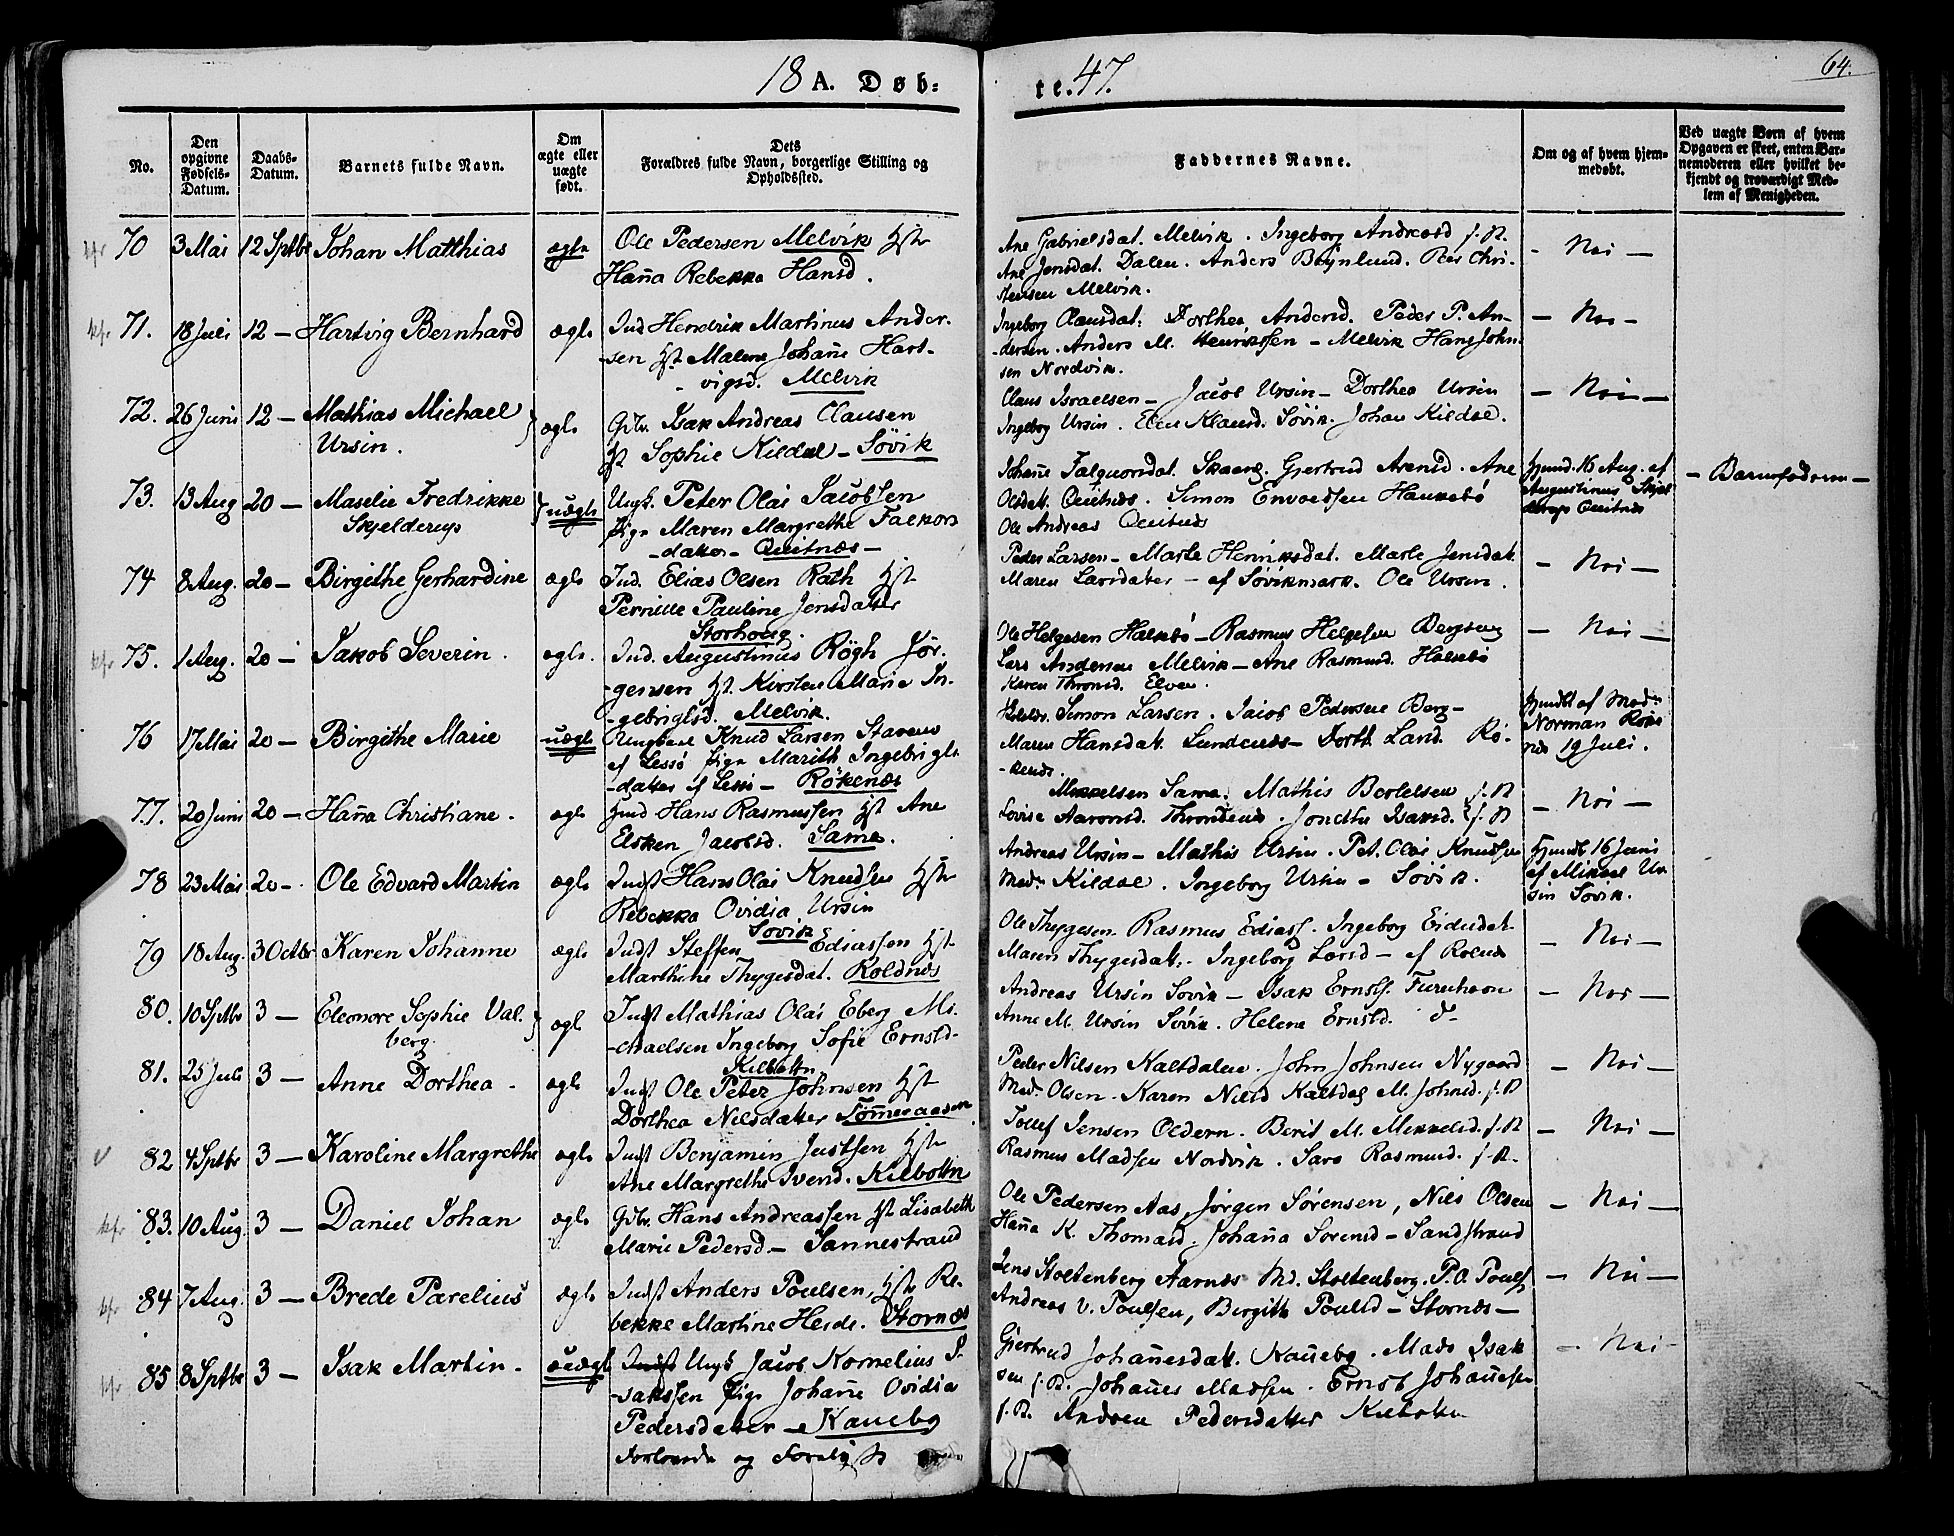 18 A. Døb:
te. 47.
64.
No.
Den opgivne Fødsels-Datum.
Daabs-Datum.
Barnets fulde Navn.
Om ægte eller uægte født.
Dets Forældres fulde Navn, borgerlige Stilling og Opholdssted.
Faddernes Navne.
Om og af hvem hjem-medøbt.
Ved uægte Børn af hvem Opgaven er skeet, enten Bar-nemoderen eller hvilket be-kjendt og troværdigt Med-lem af Menigheden.
70 3 Mai 12 Sptbr Johan Matthias ægte
Ole Pedersen Melvik Hst
Hanna Rebekka Hansd.
Ane Gabrielsdat. Melvik. Ingeborg Andreasd f. St.
Ane Jensdat. Dalen. Anders Brynlund. Per Chri-
stensen Melvik.
- Nei -
71. 18 Juli 12 - Hartvig Bernhard ægte
Ind Hendrik Martinus Ander-
sen Hst Malene Johanne Hart-
vigsd. Melvik
Ingeborg Clausdat. Dorthea Andersd. Peder P. An-
dersen. Anders M. Henrikssen - Melvik Hans John
sen Nordvik.
- Nei -
72. 26 Juni 12 - Mathias Michael
Ursin. ægte
Gbr. Isak Andreas Clausen
Hst Sophie Kildal - Søvik
Claus Israelsen - Jacob Ursin - Dorthea Ursin
Ingeborg Ursin. Elen Klausd. Søvik. Johan Kildal.
- Nei -
73. 13 Aug 20 - Maselie Fredrikke
Skjelderup uægte
Ungk. Peter Olai Jacobsen
Pige Maren Margrethe Falkors
datter - Qvitnæs -
Johanne Falquorsdat. Skaang. Gjertrud Arensd. Ane
Olsdat. Qvitnæs. Simon Envoldsen Haukebø
Ole Andreas Qvitnæs
Hjmd. 16 Aug. af
Augustinus Skjel
derup Qvitnæs
- Barnefaderen -
74 8 Aug. 20 - Birgithe Gerhardine ægte
Ind. Elias Olsen Rath Hst
Pernille Pauline Jensdatter
Storhoug.
Peder Larsen - Marte Henriksdat. Marte Jensdat
Maren Larsdatter - af Søvikmark. Ole Ursin.
- Nei -
75. 1 Aug. 20 - Jakob Severin. ægte.
Ind. Augustinus Røgh Jør-
gensen Hst. Kirsten Marie In-
gebrigtsd. Melvik.
Ole Helgesen Halsebø - Rasmus Helgesen Bergseng
Lars Andersen Melvik - Ane Rasmusd. Halsebø
Karen Thronsd. Elven.
- Nei -
76 17 Mai 20 - Birgithe Marie uægte
Ungkarl Knud Larsen Stavens
af Lessø Pige Marith Ingebrigts
datter af Lessø - Røkenæs
Simon Larsen. Jacob Pedersen Berg-
Maren Hansdat. Lundenæs - Dorth Land. Rø-
kenæs.
Hjmdt af Mad:
Norman Røke
næs 19 Juli.
77. 20 Juni 20 - Hanna Christiane. ægte
Hmd Hans Rasmussen Hst Ane
Elsken Jacobsd. Sama.
Mikkelsen Sama. Mathis Bertelsen f. St
Lovise Aaronsd. Throndenæs. Jonetha Isaksd. f. St
- Nei -
78 23 Mai 20 - Ole Edvard Martin ægte
Indst Hans Olai Knudsen Hst
Rebekka Ovidia Ursin
Søvik
Andreas Ursin - Mathis Ursin. Pet. Olai Knudsen
Mad: Kildal. Ingeborg Ursin - Søvik.
Hjmdt 16 Juni
af Mikael Ur
sin Søvik.
79 18 Aug. 3 Octbr Karen Johanne ægte
Indst Steffen Ediassen Hst
Marthine Thygesdat. Roldnæs
Ole Thygesen Rasmus Ediass. Ingeborg Eidisdat
Maren Thygesdat. - Ingeborg Larsd - af Rolnæs
- Nei -
80. 10 Sptbr 3 - Eleonore Sophie Val-
berg. ægt
Indst Mathias Olai Eberg Mi-
chaelsen Ingeborg Sofie Ernstd-
Kilbottn
Andreas Ursin Søvik - Isak Ernsts. Furuhaon
Anne M. Ursin Søvik. Helene Ernstd. d-
- Nei -
81. 25 Juli 3 - Anne Dorthea - ægte
Indst Ole Peter Johnsen Hst
Dorthea Nilsdatter Tømmeraasen
Peder Nilsen Kaltdalen. John Johnsen Nygaard
Mad: Olsen. Karen Nilsd Kaltdal M. Johnsd. f. St
- Nei -
82 4 Sptbr 3 - Karoline Margrethe ægte
Indst Benjamin Justsen Hst
Ane Margrethe Ivend. Kilbottn
Tollef Jensen Oldern. Berit M. Mikkelsd. f. St
Rasmus Madsen Nordvik. Sara Rasmusd. f. St.
- Nei -
83. 10 Aug. 3 - Daniel Johan ægte
Gbr. Hans Andreassen Hst Lisabeth
Marie Pedersd - Sannestrand
Ole Pedersen Aas, Jørgen Sørensen, Nils Olsen
Hanna K. Thomasd. Johanna Sorensd - Sandstrand
- Nei -
84 7 Aug. 3 - Brede Parelius ægte
Indst Anders Poulsen, Hst Re-
bekke Martine Heide. Stornæs
Jens Stoltenberg Aarnæs Md. Stoltenberg. P.O. Pouls
Andreas V. Poulsen, Birgith Poulsd - Stornæs -
- Nei -
85 8 Sptbr 3 - Isak Martin - uægte
Indst Ungk Jacob Kornelius I-
sakssen Pige Johanne Ovidia
Pedersdatter - Kaneby
Forlovede og
Gjertrud Johannesdat. Kaneby. Mads Isak
sen f. St. Johannes Madsen. Ernst Johannesen
f. St. Andrea Pedersdatter Kilbottn
- Nei -